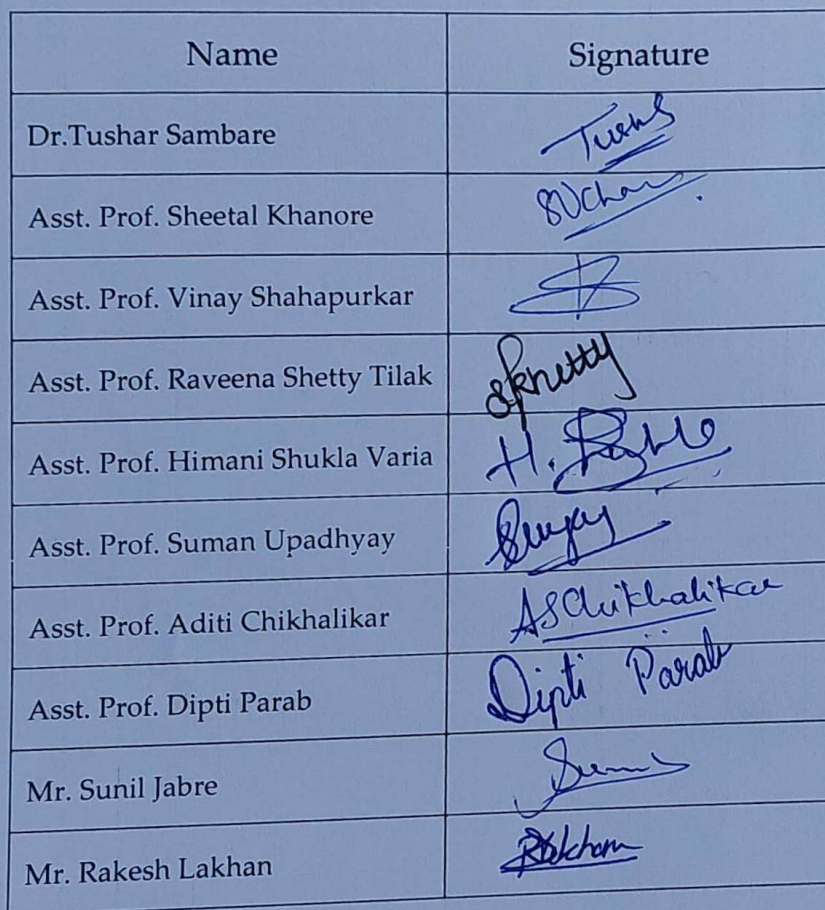 Name Signature
Dr.Tushar Sambare
Asst. Prof. Sheetal Khanore
Asst. Prof. Vinay Shahapurkar
Asst. Prof. Raveena Shetty Tilak
Asst. Prof. Himani Shukla Varia H.
Asst. Prof. Suman Upadhyay
Asst. Prof. Aditi Chikhalikar ASChikhalikar
Asst. Prof. Dipti Parab Dipti Parab
Mr. Sunil Jabre
Mr. Rakesh Lakhan